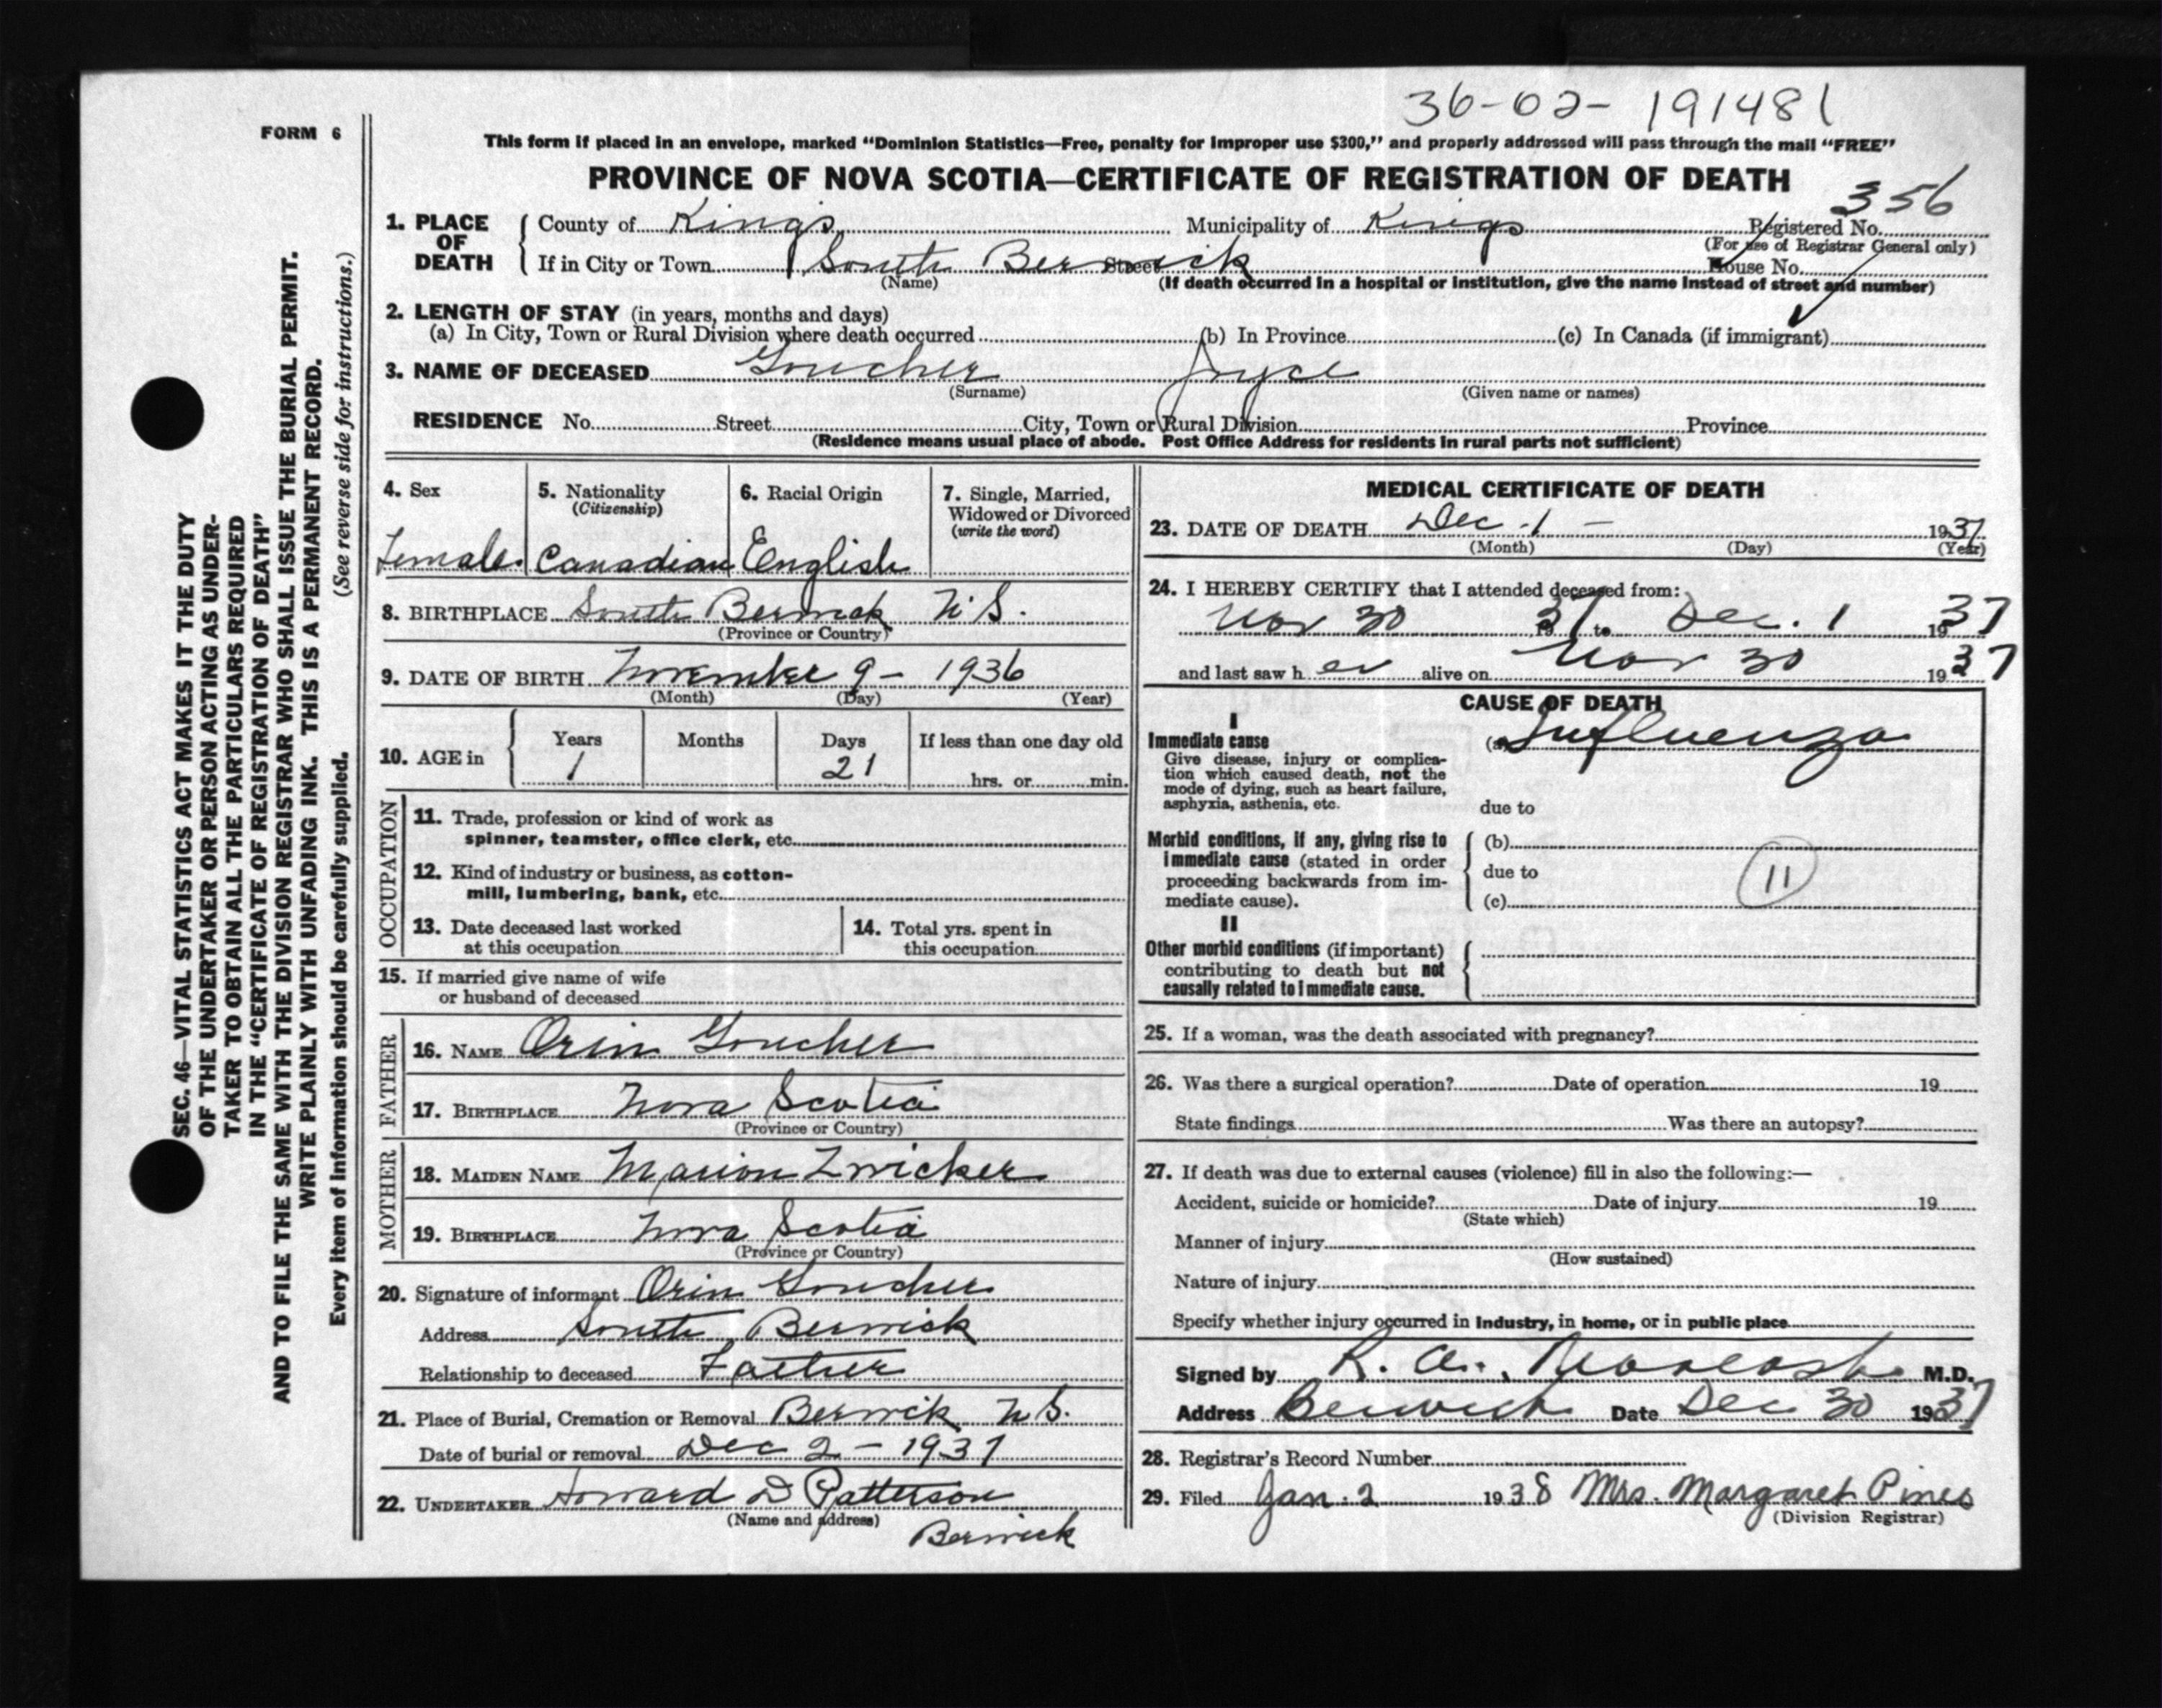 36-02-191481
FORM 6
This form if placed in an envelope, marked "Dominion Statistics—Free, penalty for improper use $300," and properly addressed will pass through the mail "FREE"
PROVINCE OF NOVA SCOTIA—CERTIFICATE OF REGISTRATION OF DEATH
356
1. PLACE OF DEATH County of Kings Municipality of Kings Registered No.
(For use of Registrar General only)
If in City or Town South Berwick Street House No.
(Name) (If death occurred in a hospital or institution, give the name instead of street and number)
2. LENGTH OF STAY (in years, months and days)
(a) In City, Town or Rural Division where death occurred (b) In Province (c) In Canada (if immigrant)
3. NAME OF DECEASED Goucher Joyce
(Surname) (Given name or names)
RESIDENCE No. Street City, Town or Rural Division Province
(Residence means usual place of abode. Post Office Address for residents in rural parts not sufficient)
4. Sex
Female
5. Nationality
(Citizenship)
Canadian
6. Racial Origin
English
7. Single, Married,
Widowed or Divorced
(write the word)
8. BIRTHPLACE South Berwick N.S.
(Province or Country)
9. DATE OF BIRTH November 9 - 1936
(Month) (Day) (Year)
10. AGE in Years Months Days If less than one day old
1 21 hrs. or min.
OCCUPATION
11. Trade, profession or kind of work as
spinner, teamster, office clerk, etc.
12. Kind of industry or business, as cotton-
mill, lumbering, bank, etc.
13. Date deceased last worked
at this occupation
14. Total yrs. spent in
this occupation
15. If married give name of wife
or husband of deceased
FATHER
16. NAME Orin Goucher
17. BIRTHPLACE Nova Scotia
(Province or Country)
MOTHER
18. MAIDEN NAME Marion Zwicker
19. BIRTHPLACE Nova Scotia
(Province or Country)
20. Signature of informant Orin Goucher
Address South Berwick
Relationship to deceased Father
21. Place of Burial, Cremation or Removal Berwick N.S.
Date of burial or removal Dec 2 - 1937
22. UNDERTAKER Howard D Patterson
(Name and address)
Berwick
MEDICAL CERTIFICATE OF DEATH
23. DATE OF DEATH Dec. 1 - 1937
(Month) (Day) (Year)
24. I HEREBY CERTIFY that I attended deceased from:
Nov 30 1937 to Dec. 1 1937
and last saw h er alive on Nov 30 1937
CAUSE OF DEATH
I
Immediate cause
Give disease, injury or complica-
tion which caused death, not the
mode of dying, such as heart failure,
asphyxia, asthenia, etc.
(a) Influenza
due to
Morbid conditions, if any, giving rise to
immediate cause (stated in order
proceeding backwards from im-
mediate cause).
(b)
due to
(c)
11
II
Other morbid conditions (if important)
contributing to death but not
causally related to immediate cause.
25. If a woman, was the death associated with pregnancy?
26. Was there a surgical operation? Date of operation 19
State findings Was there an autopsy?
27. If death was due to external causes (violence) fill in also the following:—
Accident, suicide or homicide? Date of injury 19
(State which)
Manner of injury
(How sustained)
Nature of injury
Specify whether injury occurred in industry, in home, or in public place
Signed by R. A. M.D.
Address Berwick Date Dec 30 1937
28. Registrar's Record Number
29. Filed Jan. 2 1938 Mrs. Margaret Pines
(Division Registrar)
SEC. 46—VITAL STATISTICS ACT MAKES IT THE DUTY
OF THE UNDERTAKER OR PERSON ACTING AS UNDER-
TAKER TO OBTAIN ALL THE PARTICULARS REQUIRED
IN THE "CERTIFICATE OF REGISTRATION OF DEATH"
AND TO FILE THE SAME WITH THE DIVISION REGISTRAR WHO SHALL ISSUE THE BURIAL PERMIT.
WRITE PLAINLY WITH UNFADING INK. THIS IS A PERMANENT RECORD.
Every item of information should be carefully supplied. (See reverse side for instructions.)